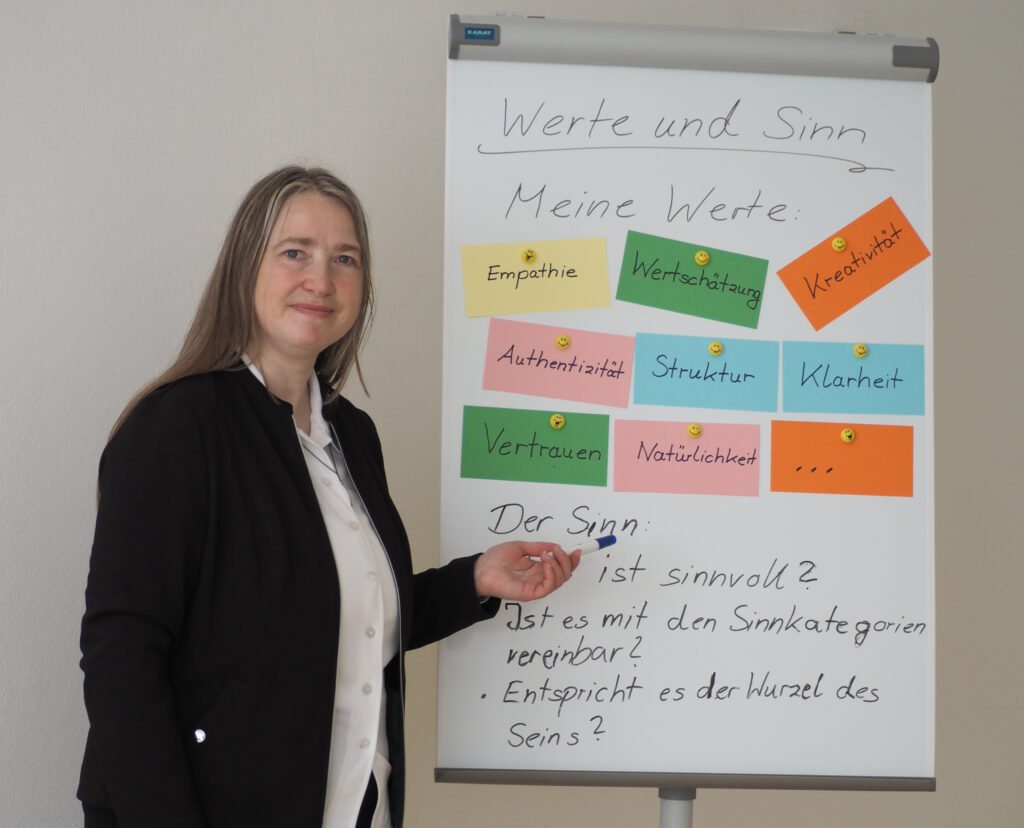 KARAT
Werte und Sinn
Meine Werte:
Empathie
Wertschätzung
Kreativität
Authentizität
Struktur
Klarheit
Vertrauen
Natürlichkeit
...
Der Sinn:
ist sinnvoll?
Ist es mit den Sinnkategorien
vereinbar?
. Entspricht es der Wurzel des
Seins?